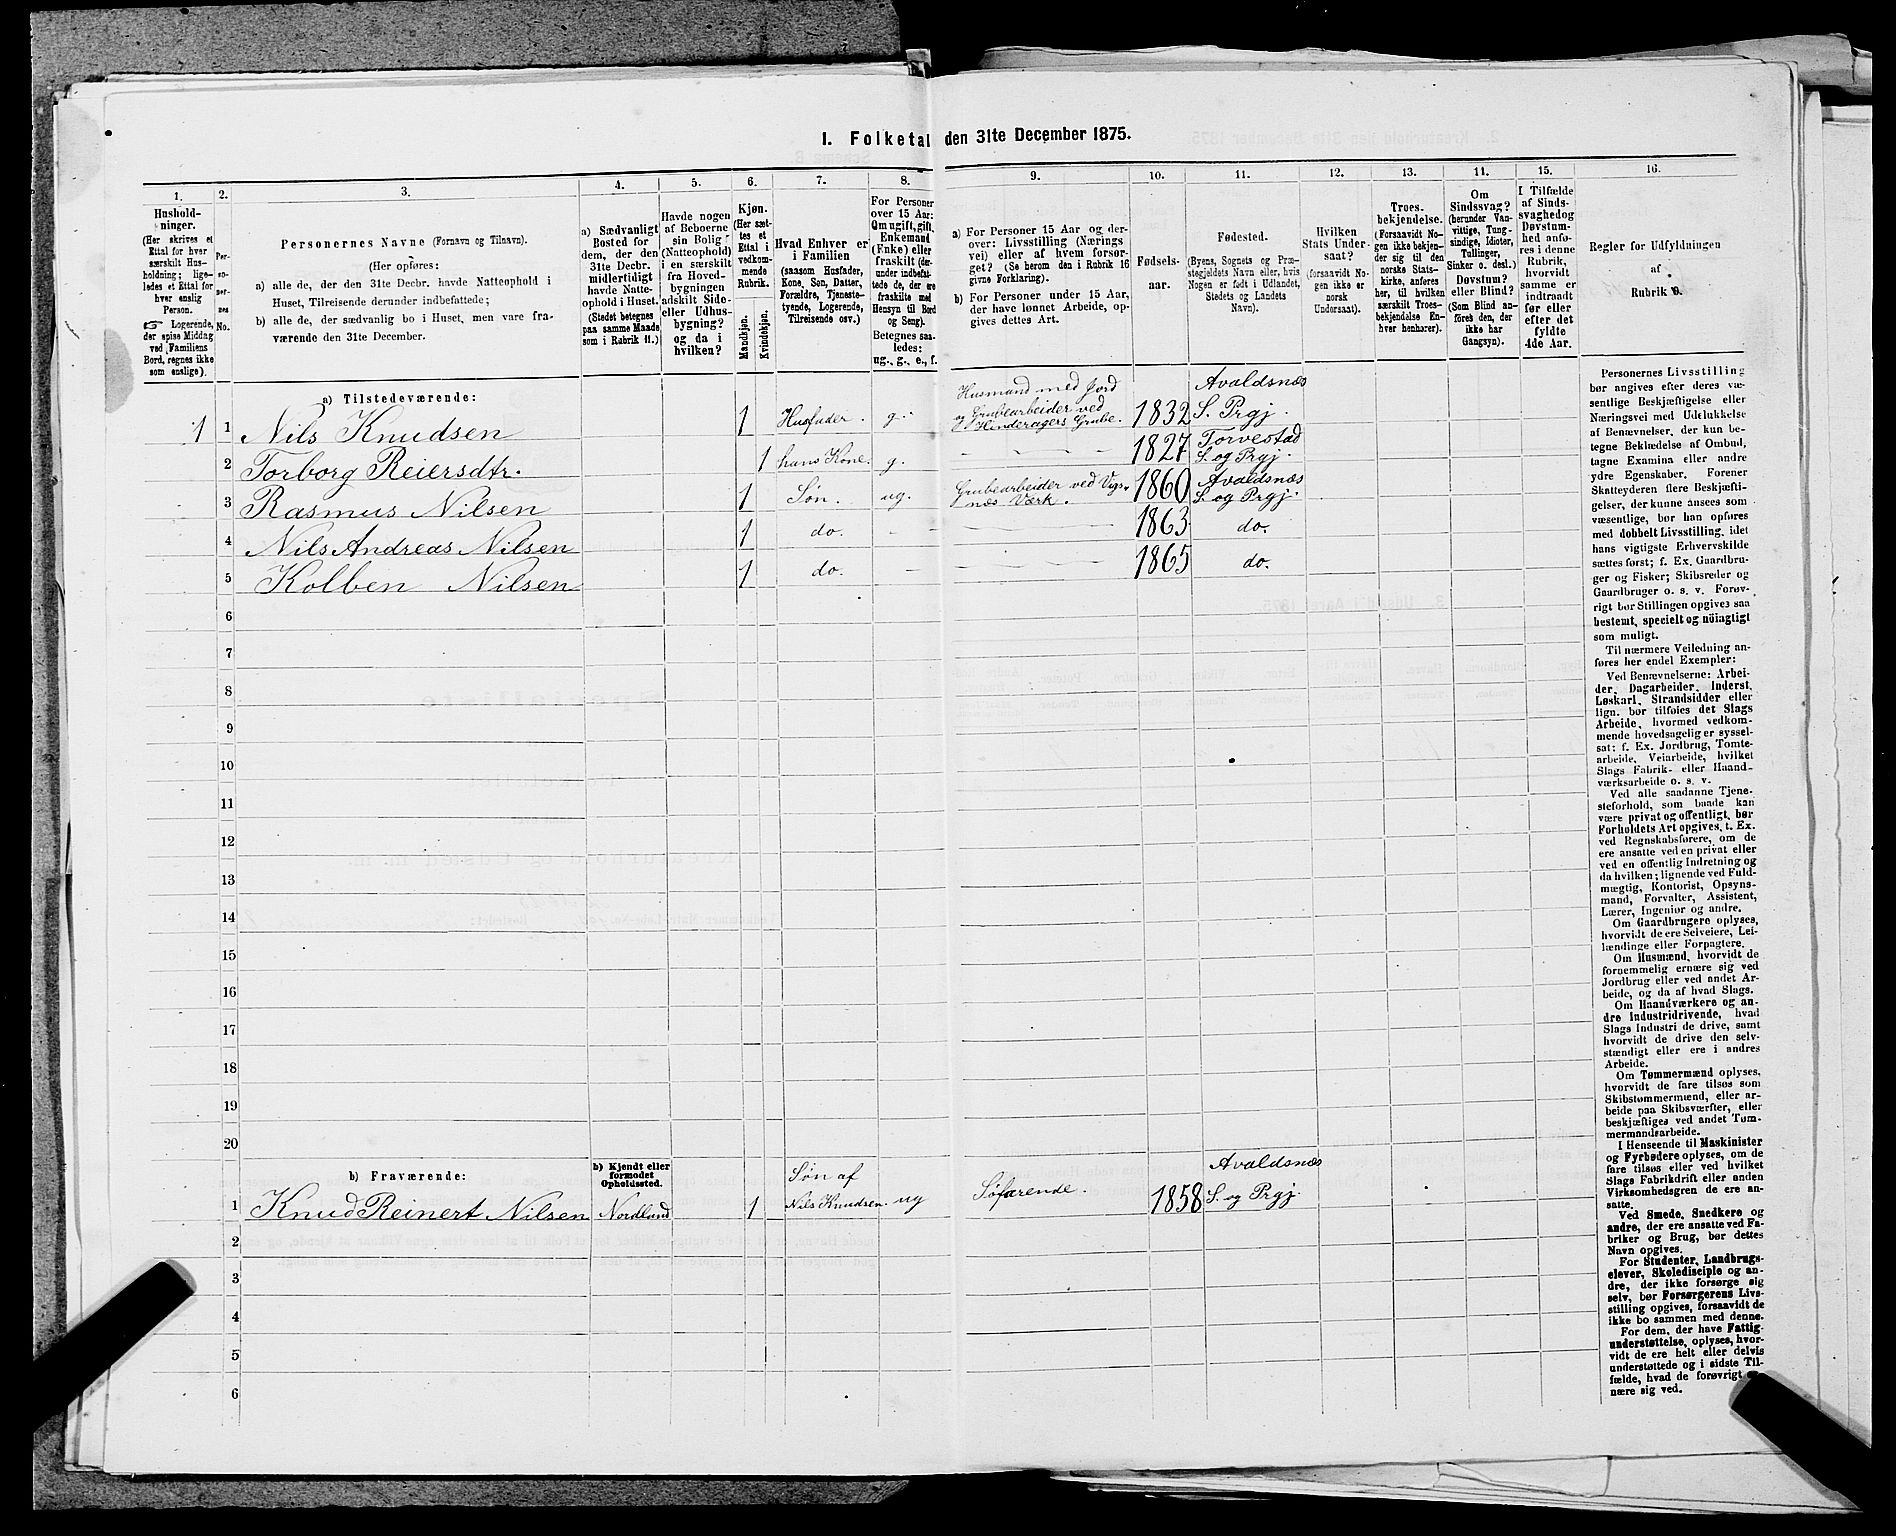 I. Folketal den 31te December 1875.
1. 2. 3. 4. 5. 6. 7. 8. 9. 10. 11. 12. 13. 14. 15. 16.
Hushold-
ninger.
(Her skrives et
Ettal for hver
særskilt Hus-
holdning; lige-
ledes et Ettal for
hver enslig
Person.
☞ Logerende,
der spise Middag
ved Familiens
Bord, regnes ikke
som enslige).
Per-
so-
ner-
nes
No.
Personernes Navne (Fornavn og Tilnavn).
(Her opføres:
a) alle de, der den 31te Decbr. havde Natteophold i
Huset, Tilreisende derunder indbefattede;
b) alle de, der sædvanlig bo i Huset, men vare fra-
værende den 31te December.
a) Sædvanligt
Bosted for
dem, der den
31te Decbr.
midlertidigt
havde Natte-
ophold i Huset.
(Stedet betegnes
paa samme Maade
som i Rubrik 11.)
Havde nogen
af Beboerne
sin Bolig
(Natteophold)
i en særskilt
fra Hoved-
bygningen
adskilt Side-
eller Udhus-
bygning?
og da i
hvilken?
Kjøn.
(Her sæt-
tes et
Ettal i
vedkom-
mende
Rubrik.
Mandkjøn.
Kvindekjøn.
Hvad Enhver er
i Familien
(saasom Husfader,
Kone, Søn, Datter,
Forældre, Tjeneste-
tyende, Logerende,
Tilreisende osv.)
For Personer
over 15 Aar:
Om ugift, gift,
Enkemand
(Enke) eller
fraskilt (der-
under indbefat-
tede de, der ere
fraskilte med
Hensyn til Bord
og Seng).
Betegnes saa-
ledes:
ug., g., e., f.
a) For Personer 15 Aar og der-
over: Livsstilling (Nærings
vei) eller af hvem forsør-
get? (Se herom den i Rubrik 16
givne Forklaring).
b) For Personer under 15 Aar,
der have lønnet Arbeide, op-
gives dettes Art.
Fødsels-
aar.
Fødested.
(Byens, Sognets og Præ-
stegjeldets Navn eller, hvis
Nogen er født i Udlandet,
Stedets og Landets
Navn).
Hvilken
Stats Under-
saat?
(forsaavidt No-
gen ikke er
norsk
Undersaat).
Troes-
bekjendelse.
(Forsaavidt No-
gen ikke bekjen-
der sig til den
norske Stats-
kirke, anføres
her, til hvilken
særskilt Troes-
bekjendelse En-
hver henhører).
Om
Sindssvag?
(herunder Van-
vittige, Tung-
sindige, Idioter,
Tullinger,
Sinker o. desl.)
Døvstum?
eller Blind?
(Som Blind an-
føres den, der
ikke har
Gangsyn).
I Tilfælde
af Sinds-
svaghed og
Døvstum-
hed anfø-
res i denne
Rubrik,
hvorvidt
samme er
indtraadt
før eller
efter det
fyldte
4de Aar.
Regler for Udfyldningen
af
Rubrik 9.
a) Tilstedeværende:
1 1 Nils Knudsen 1 Husfader. g. Husmand med Jord
og Grubearbeider ved
Hinderagers Grube. 1832 Avaldsnæs
S. Prgj.
2 Torborg Reiersdtr. 1 hans Kone. g. 1827 Torvestad
S. og Prgj.
3 Rasmus Nilsen 1 Søn. ug. Grubearbeider ved Vigs-
næs Værk. 1860 Avaldsnæs
S. og Prgj.
4 Nils Andreas Nilsen 1 do. 1863 do.
5 Kolben Nilsen 1 do. 1865 do.
6
7
8
9
10
11
12
13
14
15
16
17
18
19
20
b) Fraværende:
b) Kjendt eller
formodet
Opholdssted.
1 Knud Reinert Nilsen Nordland 1 Søn af
Nils Knudsen. ug Søfarende. 1858 Avaldsnæs
S. og Prgj.
2
3
4
5
6
Personernes Livsstilling
bør angives efter deres væ-
sentlige Beskjæftigelse eller
Næringsvei med Udelukkelse
af Benævnelser, der kun be-
tegne Beklædelse af Ombud,
tagne Examina eller andre
ydre Egenskaber. Forener
Skatteyderen flere Beskjæfti-
gelser, der kunne ansees som
væsentlige, bør han opføres
med dobbelt Livsstilling, idet
hans vigtigste Erhvervskilde
sættes først; f. Ex. Gaardbru-
ger og Fisker; Skibsreder og
Gaardbruger o. s. v. Forøv-
rigt bør Stillingen opgives saa
bestemt, specielt og nöiagtigt
som muligt.
Til nærmere Veiledning an-
føres her endel Exempler:
Ved Benævnelserne: Arbei-
der, Dagarbeider, Inderst,
Løskarl, Strandsidder eller
lign. bør tilføies det Slags
Arbeide, hvormed vedkom-
mende hovedsagelig er syssel-
sat; f. Ex. Jordbrug, Tomte-
arbeide, Veiarbeide, hvilket
Slags Fabrik- eller Haand-
værksarbeide o. s. v.
Ved alle saadanne Tjene-
steforhold, som baade kan
være privat og offentligt, bør
Forholdets Art opgives, t. Ex.
ved Regnskabsførere, om de
ere ansatte ved en privat eller
ved en offentlig Indretning og
da hvilken; lignende ved Fuld-
mægtig, Kontorist, Opsyns-
mand, Forvalter, Assistent,
Lærer, Ingeniør og andre.
Om Gaardbrugere oplyses,
hvorvidt de ere Selveiere, Lei-
lændinge eller Forpagtere.
Om Husmænd, hvorvidt de
fornemmelig ernære sig ved
Jordbrug eller ved andet Ar-
beide, og da af hvad Slags.
Om Haandværkere og an-
dre Industridrivende, hvad
Slags Industri de drive, samt
hvorvidt de drive den selv-
stændigt eller ere i andres
Arbeide.
Om Tømmermænd oplyses,
hvorvidt de fare tilsøs som
Skibstømmermænd, eller ar-
beide paa Skibsværfter, eller
beskjæftiges ved andet Tøm-
mermandsarbeide.
I Henseende til Maskinister
og Fyrbødere oplyses, om de
fare tilsøs eller ved hvilket
Slags Fabrikdrift eller anden
Virksomhedsgren de ere an-
satte.
Ved Smede, Snedkere og
andre, der ere ansatte ved Fa-
briker og Brug, bør dettes
Navn opgives.
For Studenter, Landbrugs-
elever, Skoledisciple og an-
dre, der ikke forsørge sig
selv, bør Forsørgerens Livs-
stilling opgives, forsaavidt de
ikke bo sammen med denne.
For dem, der have Fattig-
understøttelse, oplyses, hvor-
vidt de ere helt eller delvis
understøttede og i sidste Til-
fælde, hvad de forøvrigt er-
nære sig ved.